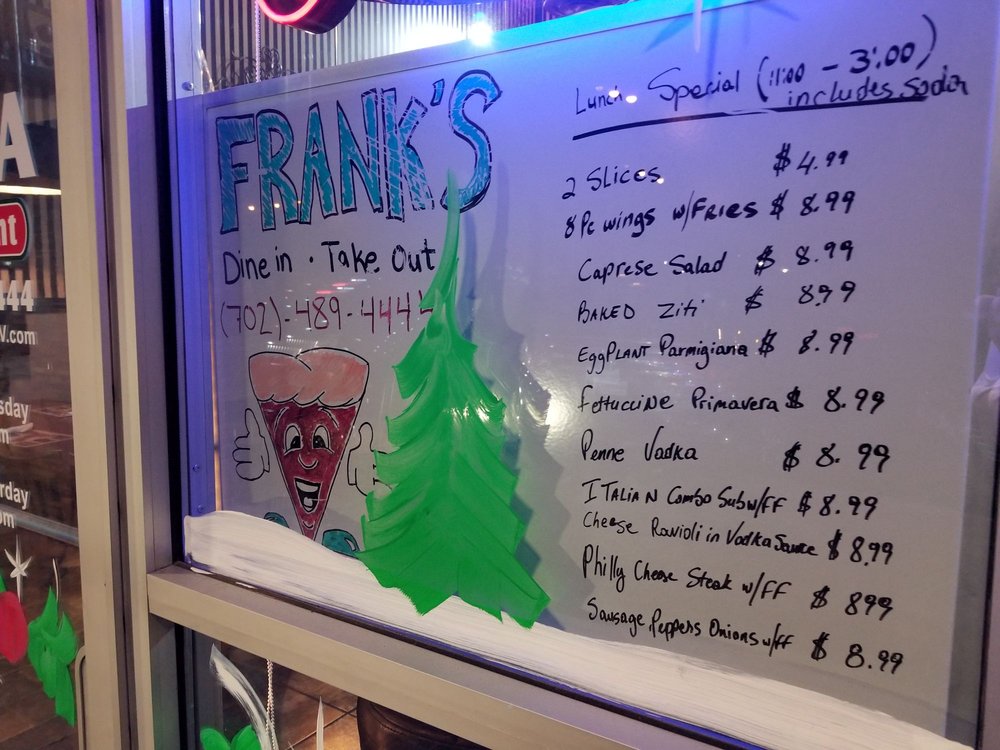 A
nt
444
V.com
sday
m
rday
om
FRANK'S
Dine in · Take Out
(702)-489-4444
Lunch Special (11:00 - 3:00)
includes soda
2 Slices $ 4.99
8 Pc wings w/FRIES $ 8.99
Caprese Salad $ 8.99
BAKED Ziti $ 8.99
EggPLANT Parmigiana $ 8.99
Fettuccine Primavera $ 8.99
Penne Vodka $ 8.99
ITALIAN Combo Sub w/FF $ 8.99
Cheese Ravioli in Vodka Sauce $ 8.99
Philly Cheese Steak w/FF $ 899
Sausage, Peppers Onions w/FF $ 8.99